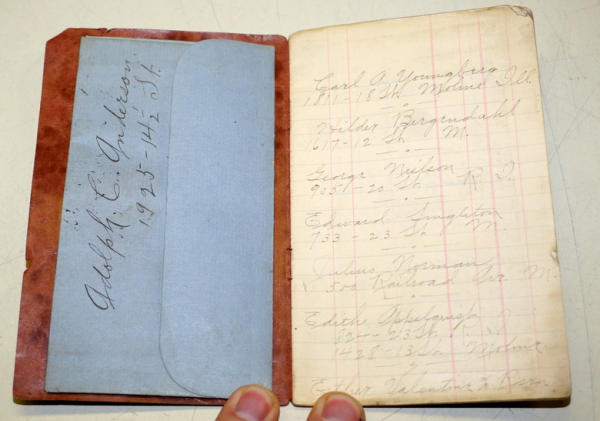 Adolph. C. Anderson.
1925-14½ St.
Carl A. Youngberg
1811-18 St. Moline Ill.
Hilder Bergendahl
1617-12 St. M.
George Neilson
905-20 St. R. I.
Edward Singleton
733-23 St. M.
Julius Norman
500 Railroad Av. M.
Edith
824-23 St.
1428-13 St. Moline
Esther Valentine